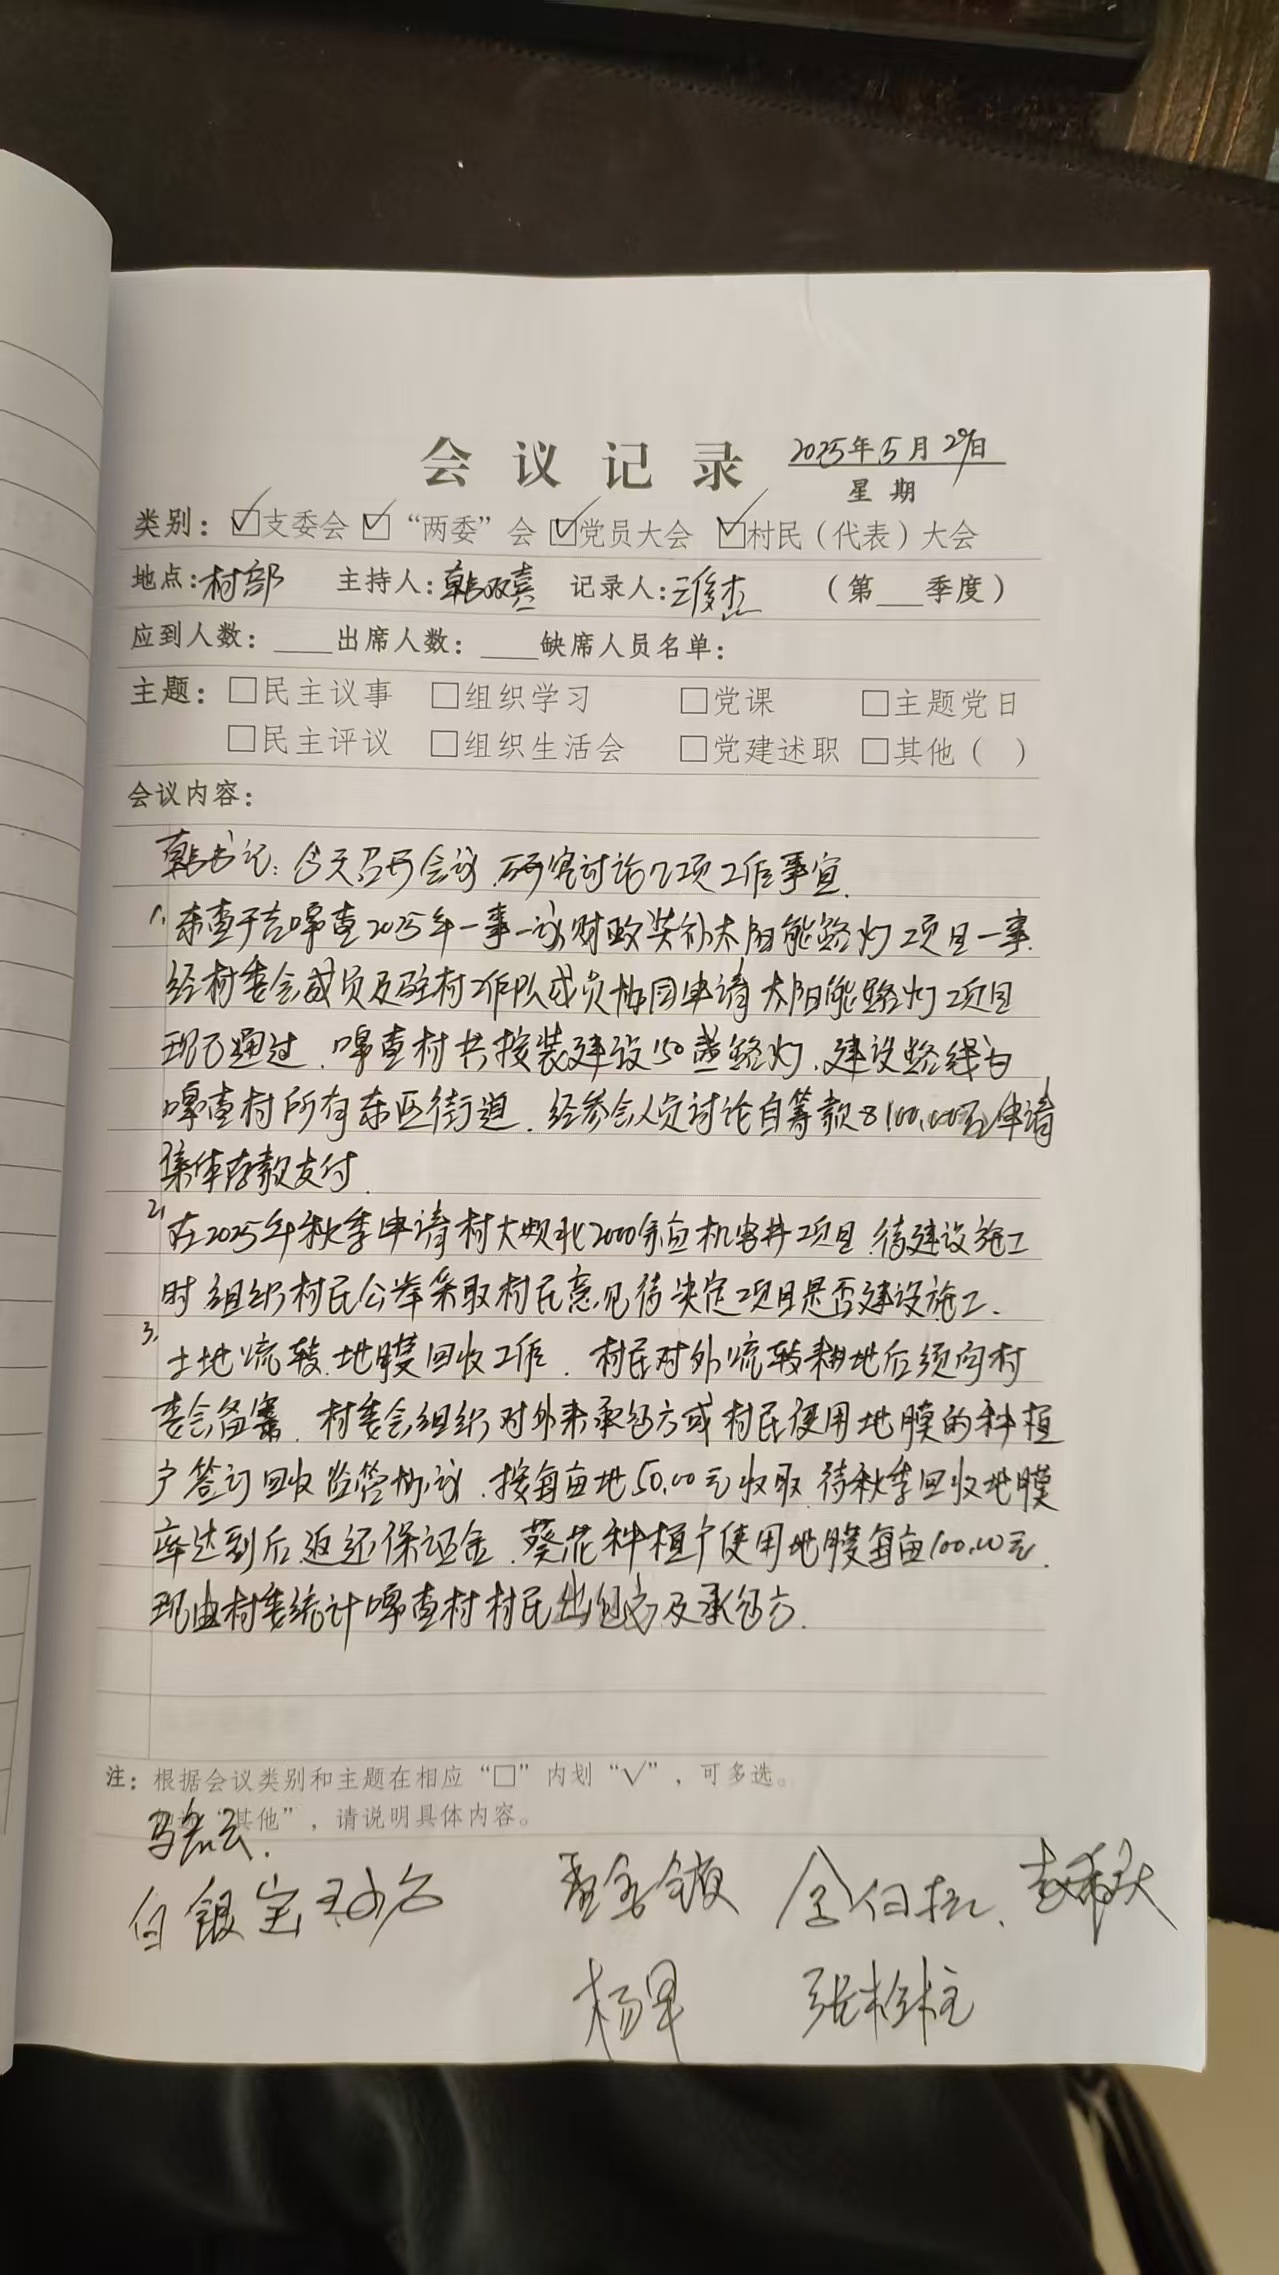 会议记录 2025年5月29日
星期
类别：☑支委会 ☑“两委”会 ☑党员大会 ☑村民（代表）大会
地点：村部 主持人：韩双喜 记录人：王俊杰 （第___季度）
应到人数：____出席人数：____缺席人员名单：
主题：□民主议事 □组织学习 □党课 □主题党日
□民主评议 □组织生活会 □党建述职 □其他（ ）
会议内容：
韩书记：今天召开会议，研究讨论几项工作事宜.
1、东查干 嘎查2025年一事一议财政奖补太阳能路灯项目一事.
经村委会成员及驻村工作队成员协同申请太阳能路灯项目
现已通过，嘎查村共按装建设150盏路灯，建设路线为
嘎查村所有东区街道，经参会人员讨论自筹款8100.00元申请
集体存款支付.
2、在2025年秋季申请村大坝北2000余亩机电井项目，待建设施工
时组织村民公举采取村民意见待决定项目是否建设施工.
3、土地流转、地膜回收工作，村民对外流转耕地后须向村
委会备案，村委会组织对外来承包方或村民使用地膜的种植
户签订回收监管协议，按每亩地50.00元收取，待秋季回收地膜
率达到后返还保证金，葵花种植户使用地膜每亩100.00元.
现由村委统计嘎查村村民出包方及承包方.
注：根据会议类别和主题在相应“□”内划“√”，可多选。
“其他”，请说明具体内容。
白银宝
杨军 张栓柱